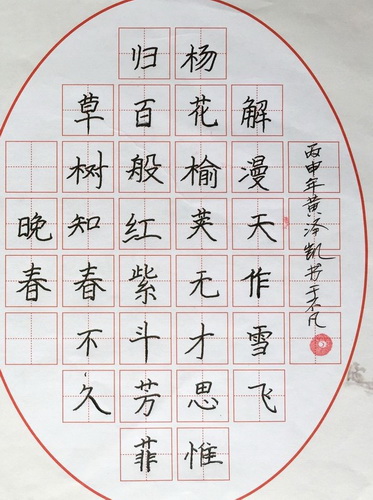 晚春
草树知春不久
归百般红紫斗芳菲
杨花榆荚无才思惟
解漫天作雪飞
丙申年黄泽凯书于不凡